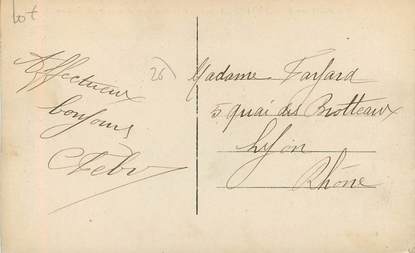 Lot
26
Affectueux
bonjours
Madame Farfard
5 quai des Brotteaux
Lyon
Rhône